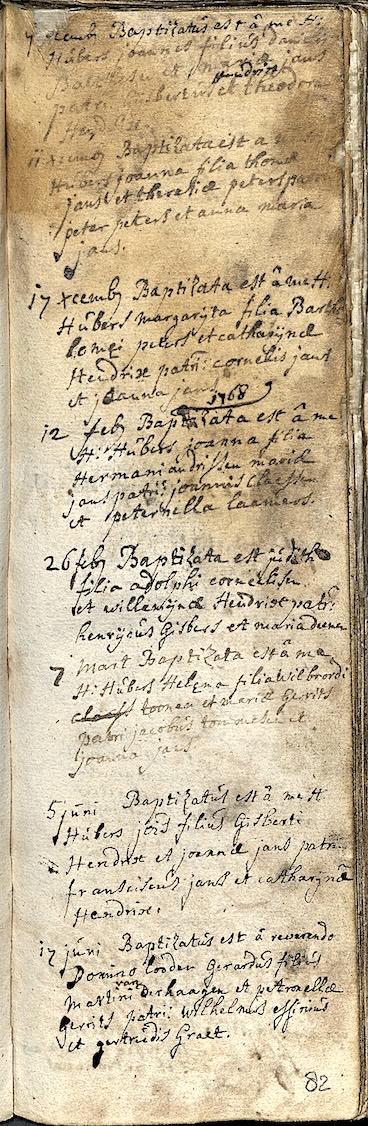 7 xcemb Baptizatus est â me H:
Hübers joannes filius
et maria jans
Hendrix
patri: Gisbertus et theodora
Hendrix
11 xcemb Baptizata est a
Hubers joanna filia thomæ
jans et theresiæ peters patri
peter peters et anna maria
jans.
17 xcemb Baptizata est â me H.
Hübers margarijta filia Barth
lomei peters et catharijnæ
Hendrix patri: cornelis jans
et joanna jans
1768
12 feb Baptizata est â me
H: Hübers joanna filia
Hermani andrissen mariæ
jans patri: joannis claessen
et peternella laamers.
26 feb Baptizata est judith
filia adolphi cornelissen
et willemijnæ Hendrix patri:
henrijcus Gisbers et maria
7 Mart Baptizata est â me
H: Hübers Helena filia wilbrordi
claess toonen et mariæ Gerrits
patri jacobus et
joanna jans
5 juni Baptizatus est â me H
Hübers jois filius Gisberti
Hendrix et joannæ jans patri
franciscus jans et catharijna
Hendrix.
17 juni Baptizatus est â reverendo
Domino looden Gerardus filius
Martini van der haagen et petronellæ
gerrits patri: wilhelmus
et gertrudis Graet.
82